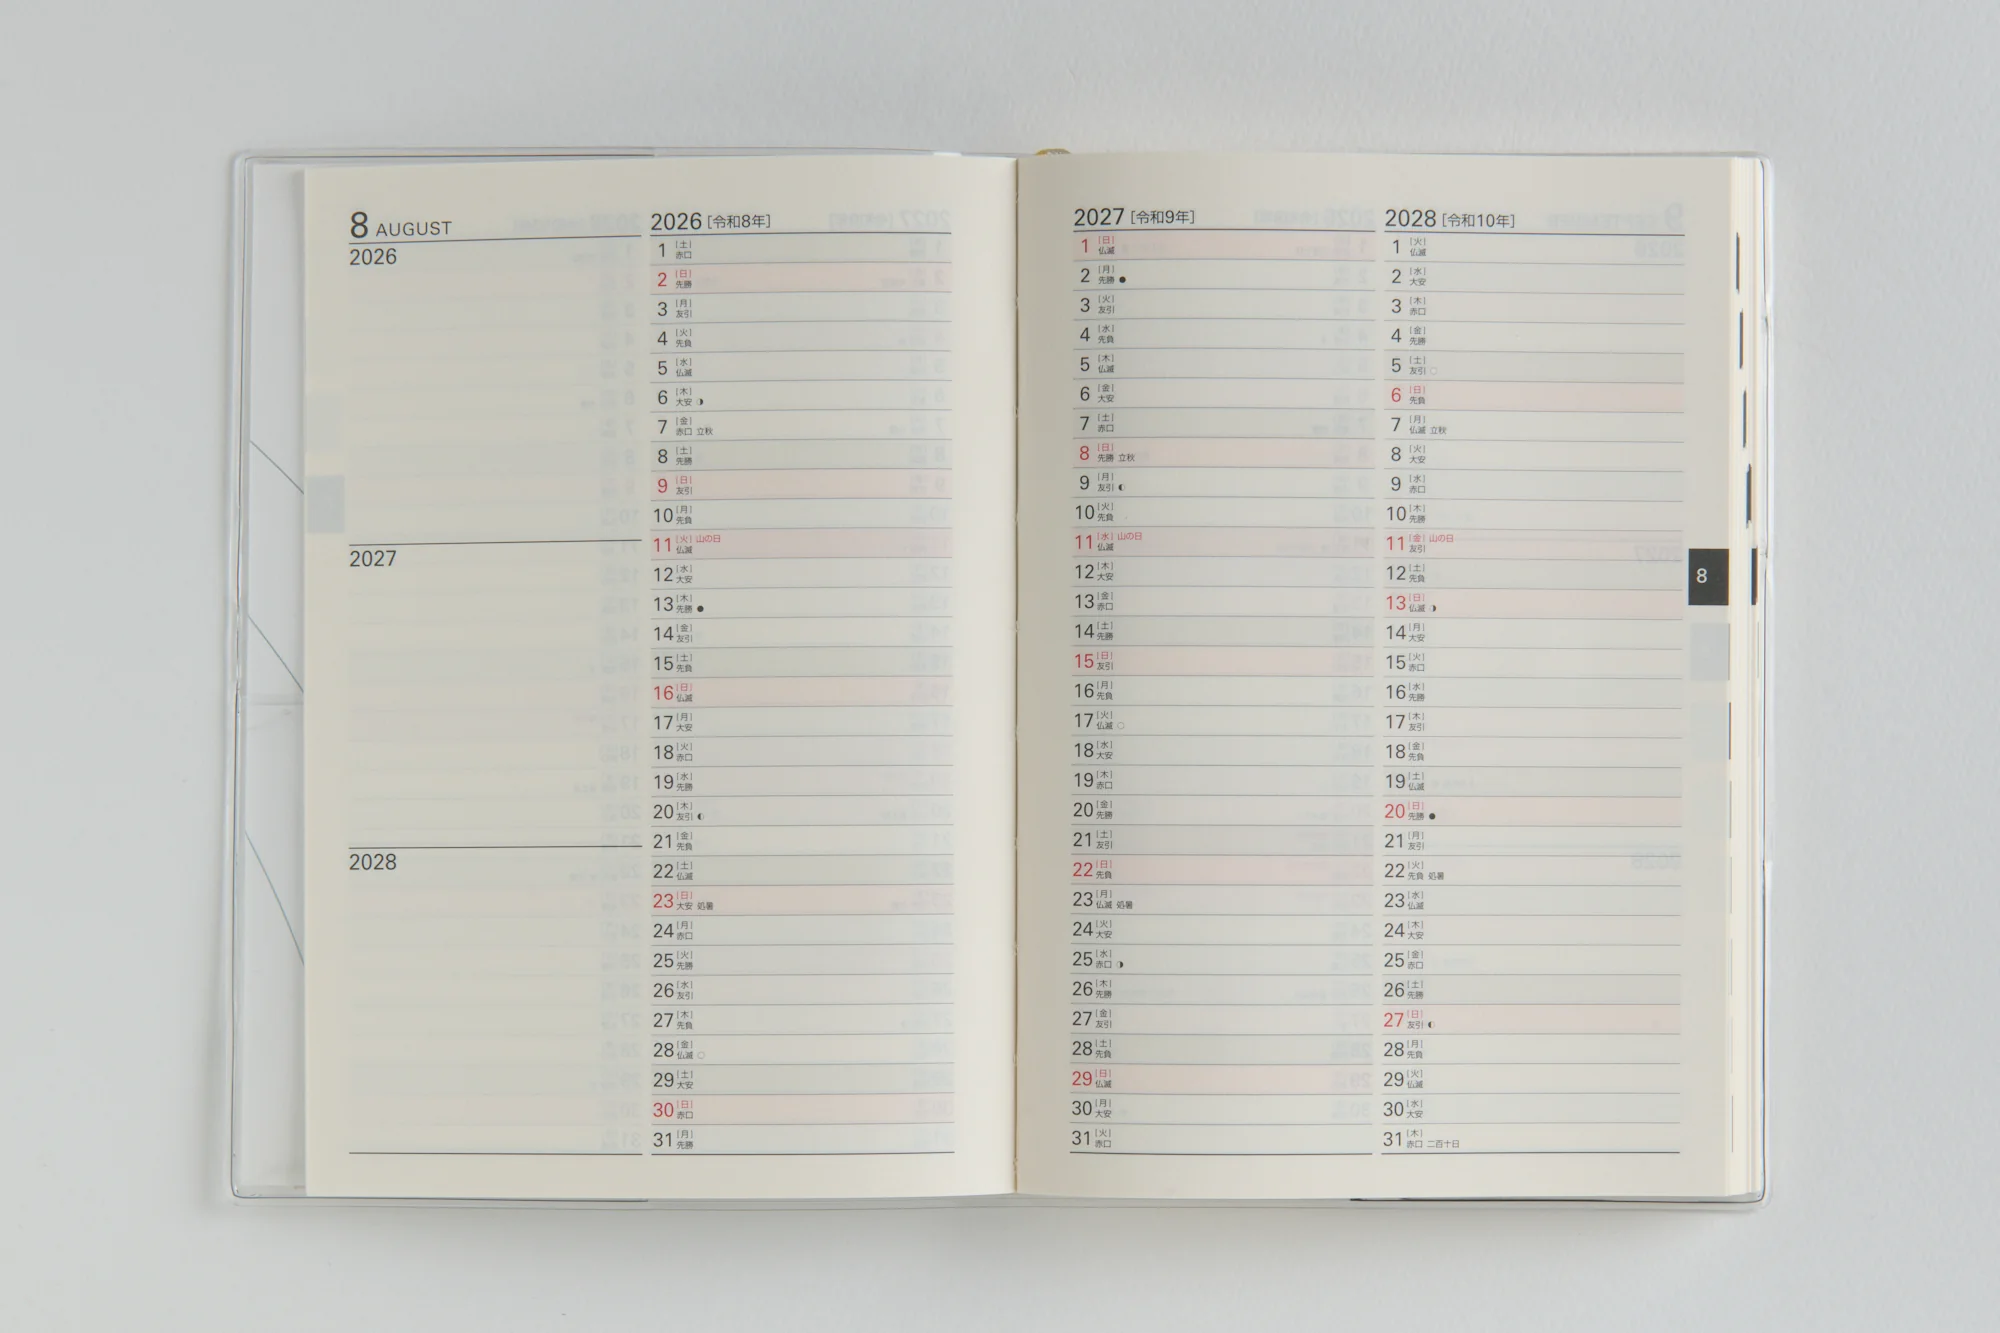 8 AUGUST
2026
2027
2028
2026 [令和8年]
1 [土]
赤口
2 [日]
先勝
3 [月]
友引
4 [火]
先負
5 [水]
仏滅
6 [木]
大安 ◑
7 [金]
赤口 立秋
8 [土]
先勝
9 [日]
友引
10 [月]
先負
11 [火] 山の日
仏滅
12 [水]
大安
13 [木]
先勝 ●
14 [金]
友引
15 [土]
先負
16 [日]
仏滅
17 [月]
大安
18 [火]
赤口
19 [水]
先勝
20 [木]
友引 ◐
21 [金]
先負
22 [土]
仏滅
23 [日]
大安 処暑
24 [月]
赤口
25 [火]
先勝
26 [水]
友引
27 [木]
先負
28 [金]
仏滅 ○
29 [土]
大安
30 [日]
赤口
31 [月]
先勝
2027 [令和9年]
1 [日]
仏滅
2 [月]
先勝 ●
3 [火]
友引
4 [水]
先負
5 [木]
仏滅
6 [金]
大安
7 [土]
赤口
8 [日]
先勝 立秋
9 [月]
友引 ◐
10 [火]
先負
11 [水] 山の日
仏滅
12 [木]
大安
13 [金]
赤口
14 [土]
先勝
15 [日]
友引
16 [月]
先負
17 [火]
仏滅 ○
18 [水]
大安
19 [木]
赤口
20 [金]
先勝
21 [土]
友引
22 [日]
先負
23 [月]
仏滅 処暑
24 [火]
大安
25 [水]
赤口 ◑
26 [木]
先勝
27 [金]
友引
28 [土]
先負
29 [日]
仏滅
30 [月]
大安
31 [火]
赤口
2028 [令和10年]
1 [火]
仏滅
2 [水]
大安
3 [木]
赤口
4 [金]
先勝
5 [土]
友引 ○
6 [日]
先負
7 [月]
仏滅 立秋
8 [火]
大安
9 [水]
赤口
10 [木]
先勝
11 [金] 山の日
友引
12 [土]
先負
13 [日]
仏滅 ◑
14 [月]
大安
15 [火]
赤口
16 [水]
先勝
17 [木]
友引
18 [金]
先負
19 [土]
仏滅
20 [日]
先勝 ●
21 [月]
友引
22 [火]
先負 処暑
23 [水]
仏滅
24 [木]
大安
25 [金]
赤口
26 [土]
先勝
27 [日]
友引 ◐
28 [月]
先負
29 [火]
仏滅
30 [水]
大安
31 [木]
赤口 二百十日
8